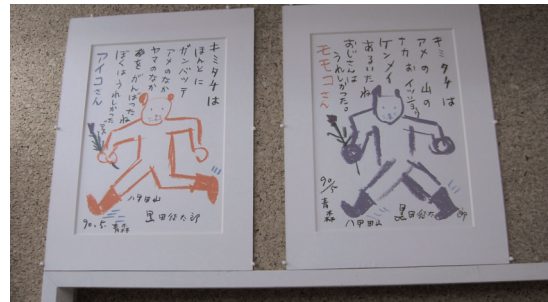 キミタチは
ほんとに
ガンバッテ
アメのなか
ヤマのなか
がんばったね
ぼくはうれしかった
アイコさん
八甲田山
黒田征太郎
90.5.青森
キミタチは
アメの山の
ナカを
イッショウ
ケンメイ
あるいたね
おじさんは
うれしかった。
モモコさん
90/5
青森
八甲田山
黒田征太郎